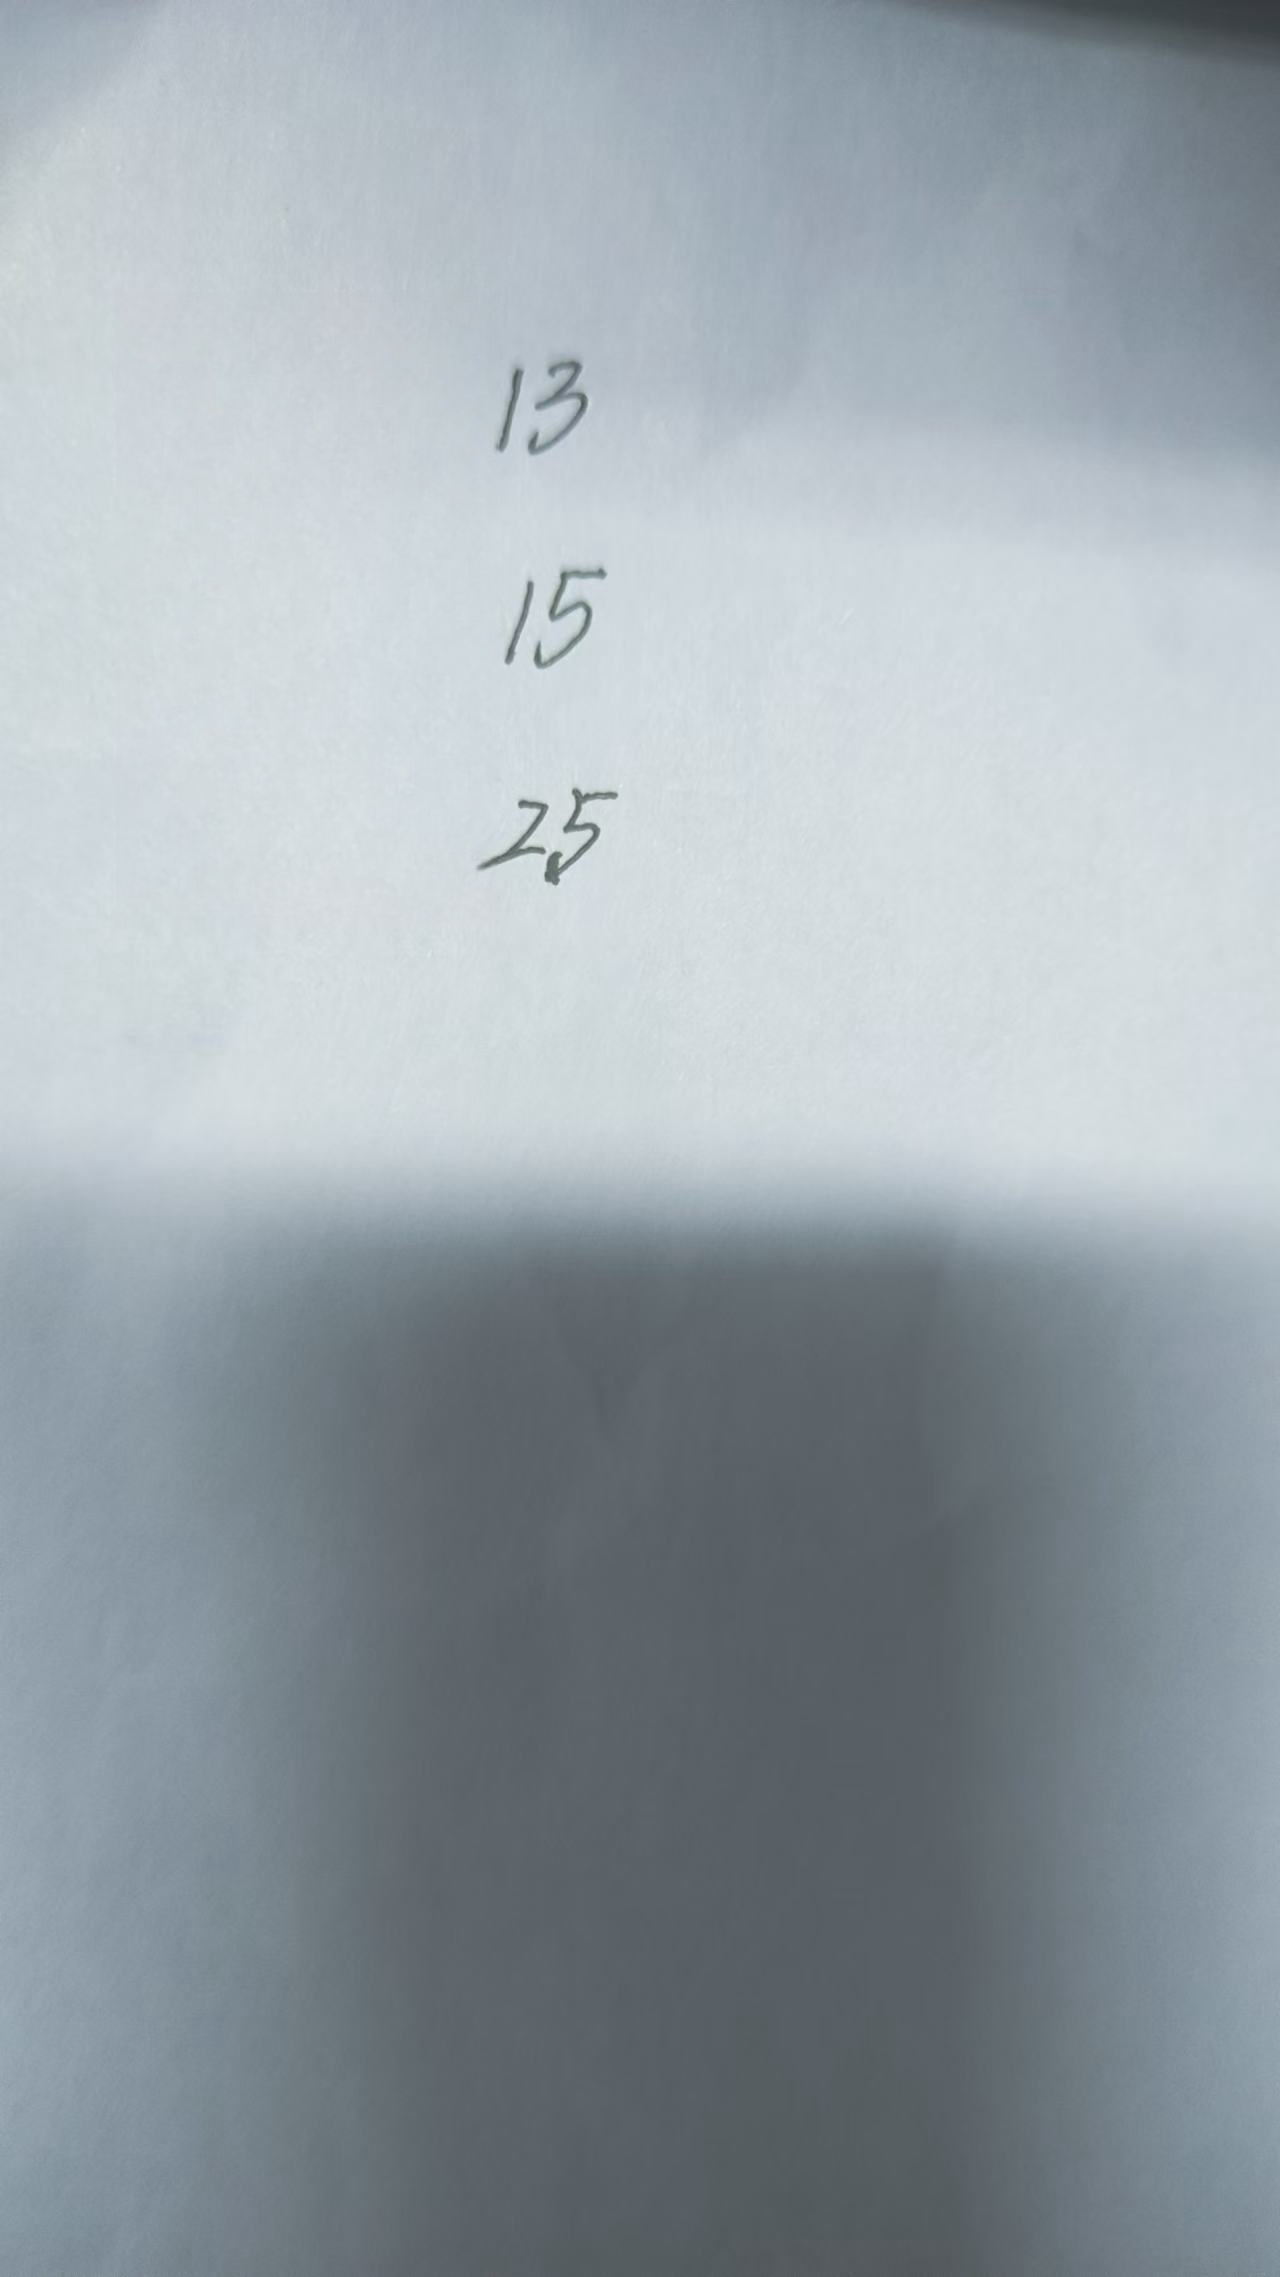 13
15
25